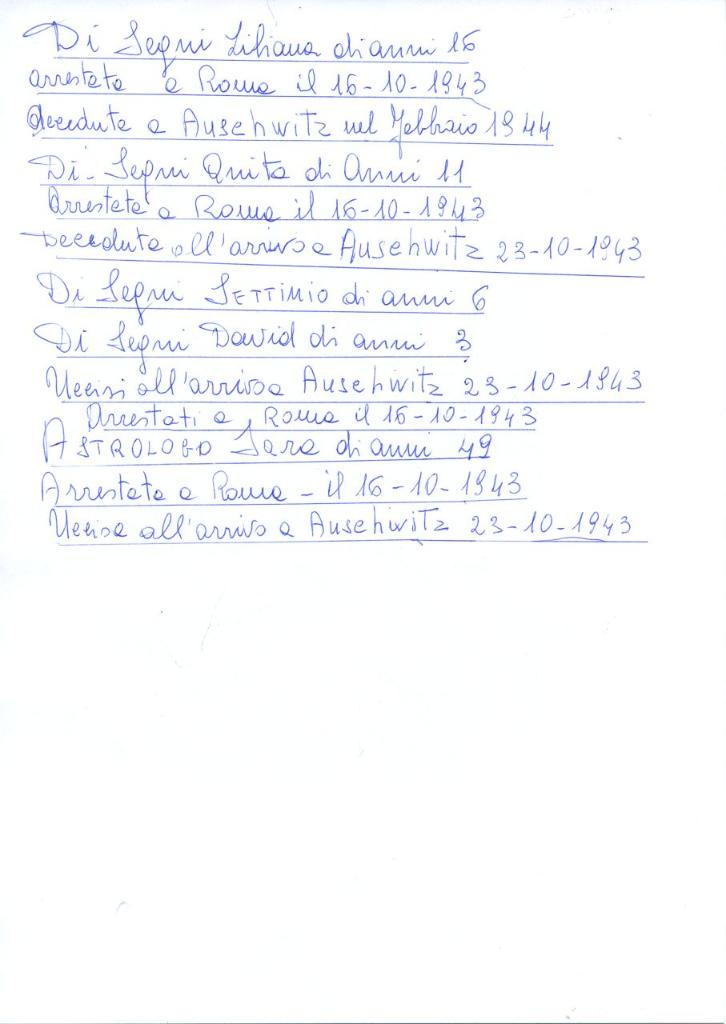 Di Segni Liliana di anni 16
arrestata a Roma il 16-10-1943
deceduta a Auschwitz nel Febbraio 1944
Di-Segni Anita di Anni 11
Arrestata a Roma il 16-10-1943
Deceduta all'arrivo a Auschwitz 23-10-1943
Di Segni SETTIMIO di anni 6
Di Segni David di anni 3
Uccisi all'arrivo a Auschwitz 23-10-1943
Arrestati a Roma il 16-10-1943
ASTROLOGO Sara di anni 49
Arrestata a Roma - il 16-10-1943
Uccisa all'arrivo a Auschwitz 23-10-1943